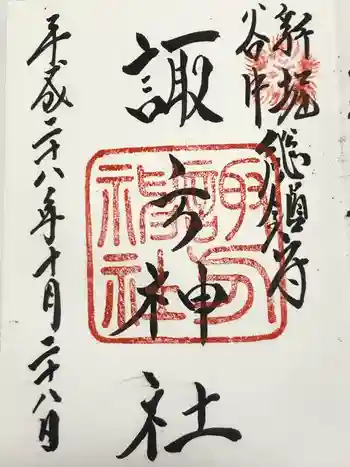 新堀
谷中 総鎮守
諏方神社
平成二十八年十月二十八日